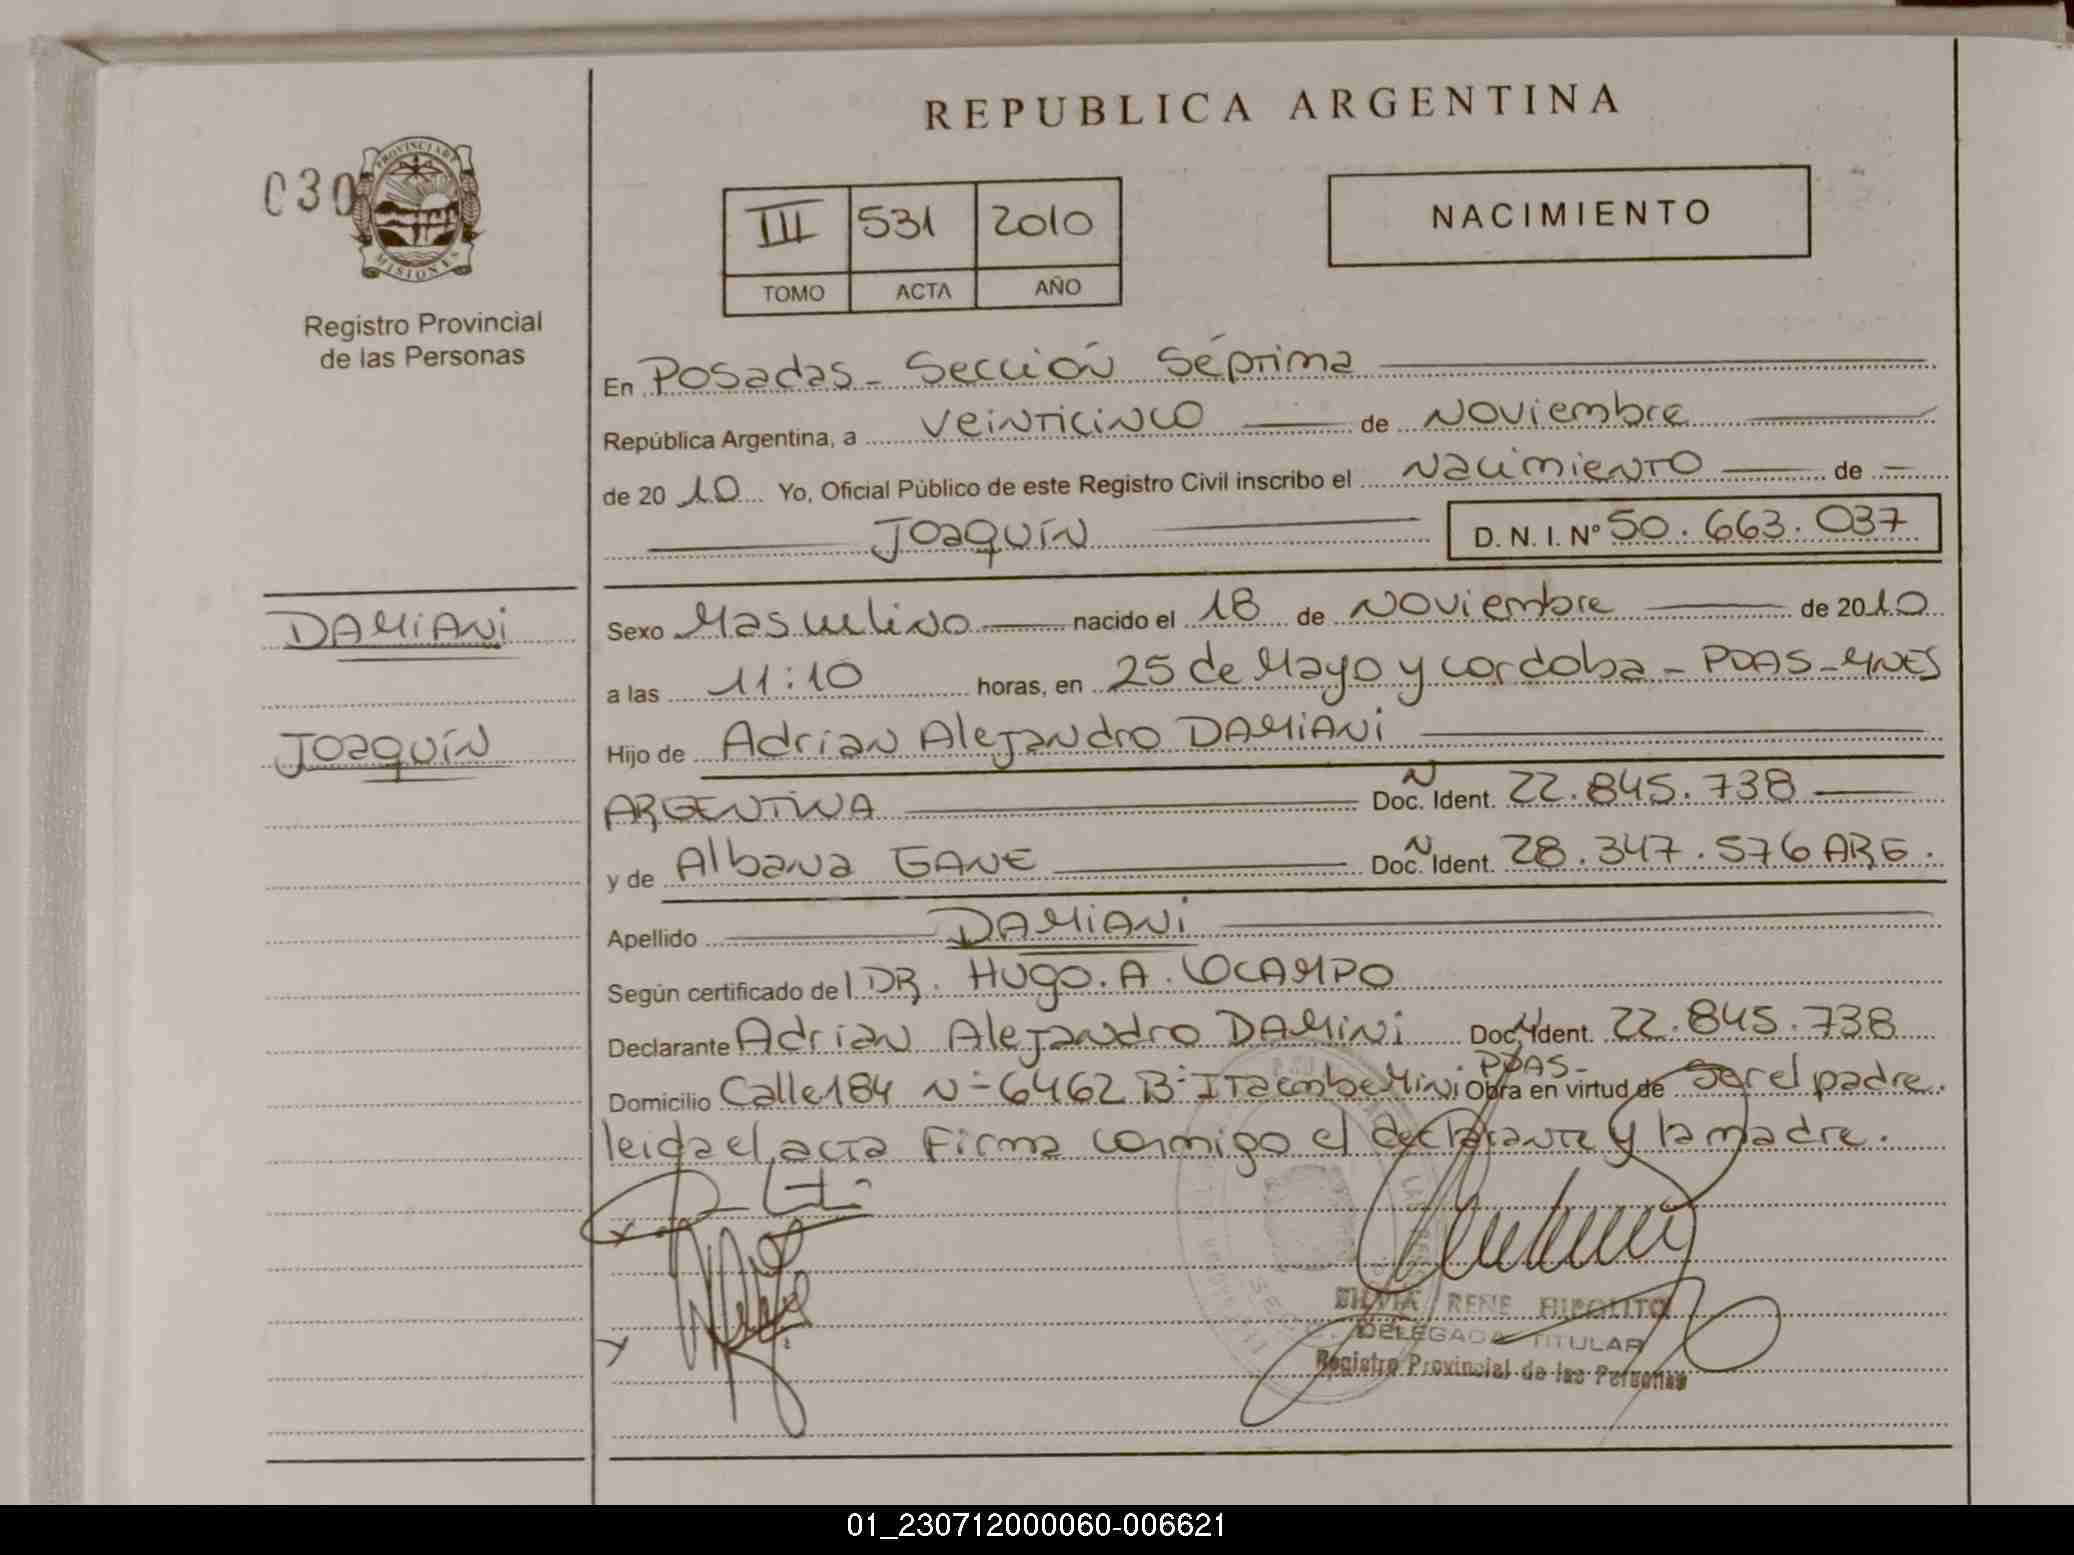 REPUBLICA ARGENTINA
030
PROVINCIA DE
MISIONES
Registro Provincial
de las Personas
III 531 2010
TOMO ACTA AÑO
NACIMIENTO
En Posadas - Sección Séptima
República Argentina, a veinticinco de Noviembre
de 2010 Yo, Oficial Público de este Registro Civil inscribo el Nacimiento de
Joaquín D. N. I. Nº 50.663.037
DAMIANI
Joaquín
Sexo Masculino nacido el 18 de Noviembre de 2010
a las 11:10 horas, en 25 de Mayo y cordoba - PDAS - MNES
Hijo de Adrian Alejandro DAMIANI
ARGENTINA Doc. Ident. 22.845.738
y de Albana GANE Doc. Ident. 28.347.576 ARG.
Apellido DAMIANI
Según certificado del DR. HUGO. A. OCAMPO
Declarante Adrian Alejandro DAMiNi Doc. Ident. 22.845.738
Domicilio Calle 184 N- 6462 B- ITaembe Mini PDAS - Obra en virtud de Ser el padre.
leida el acta Firma conmigo el declarante y la madre.
SILVIA RENE HIPOLITO
DELEGADA TITULAR
Registro Provincial de las Personas
01_230712000060-006621